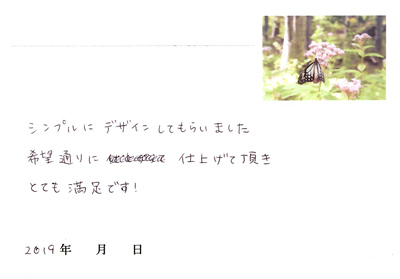 シンプルに デザインしてもらいました
希望通りに 仕上げて頂き
とても 満足です!
2019年 月 日